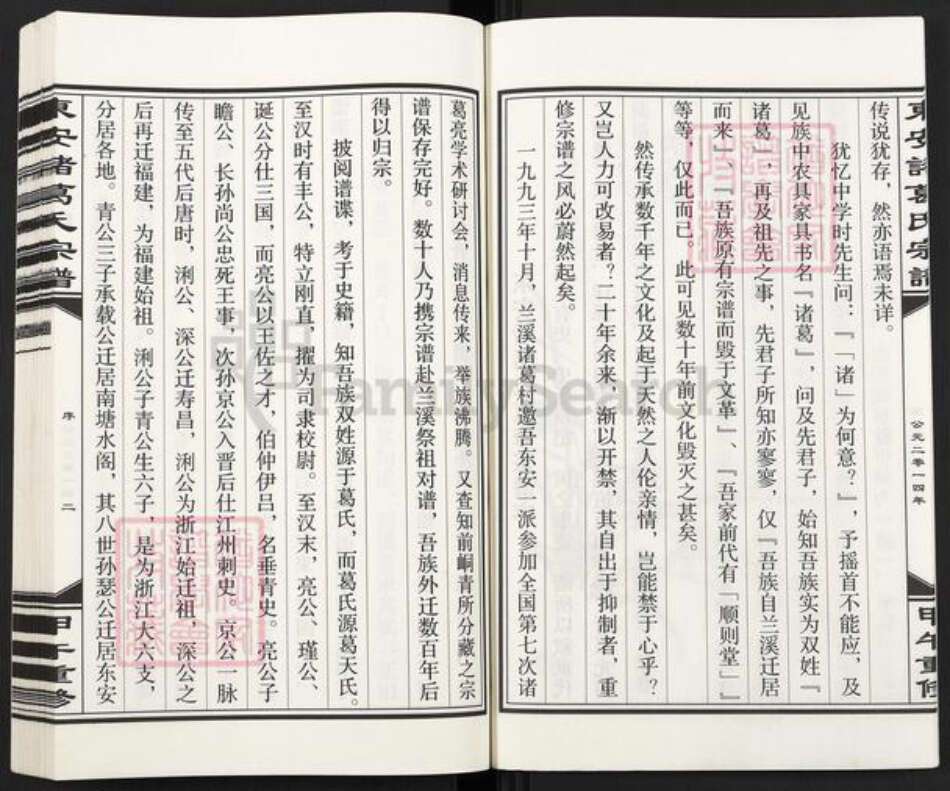 東安諸葛氏宗譜
公元二零一四年
甲午重修
传说犹存，然亦语焉未详。
犹忆中学时先生问：『「诸」为何意？』，予摇首不能应，及
见族中农具家具书名『诸葛』，问及先君子，始知吾族实为双姓『
诸葛』，再及祖先之事，先君子所知亦寥寥，仅『吾族自兰溪迁居
而来』、『吾族原有宗谱而毁于文革』、『吾家前代有「顺则堂」』
等等，仅此而已。此可见数十年前文化毁灭之甚矣。
然传承数千年之文化及起于天然之人伦亲情，岂能禁于心乎？
又岂人力可改易者？二十年余来，渐以开禁，其自出于抑制者，重
修宗谱之风必蔚然起矣。
一九九三年十月，兰溪诸葛村邀吾东安一派参加全国第七次诸
葛亮学术研讨会，消息传来，举族沸腾。又查知前峒青所分藏之宗
谱保存完好。数十人乃携宗谱赴兰溪祭祖对谱，吾族外迁数百年后
得以归宗。
披阅谱谍，考于史籍，知吾族双姓源于葛氏，而葛氏源葛天氏。
至汉时有丰公，特立刚直，擢为司隶校尉。至汉末，亮公、瑾公、
诞公分仕三国，而亮公以王佐之才，伯仲伊吕，名垂青史。亮公子
瞻公、长孙尚公忠死王事，次孙京公入晋后仕江州刺史。京公一脉
传至五代后唐时，浰公、深公迁寿昌，浰公为浙江始迁祖，深公之
后再迁福建，为福建始祖。浰公子青公生六子，是为浙江大六支，
分居各地。青公三子承载公迁居南塘水阁，其八世孙瑟公迁居东安
東安諸葛氏宗譜
序
二
甲午重修
FamilySearch